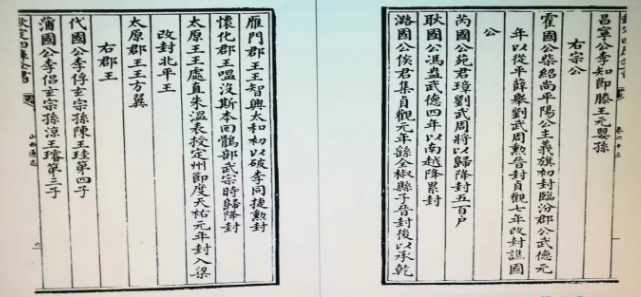 昌寧公李知節滕王元嬰孫
右宗公
霍國公柴紹尚平陽公主義旗初封臨汾郡公武德元
年以從平薛舉劉武周勲晉封貞觀七年改封譙國
公
芮國公苑君璋劉武周將以歸降封五百戶
耿國公馮盎武德四年以南越降累封
潞國公侯君集貞觀元年繇全椒縣子晉封後以承乾
雁門郡王王智興太和初以破李同捷勲封
懷化郡王嗢沒斯本回鶻部武宗時歸降封
太原王王處直朱溫表授定州節度天祐元年封入梁
改封北平王
太原郡王王方翼
右郡王
代國公李俘玄宗孫陳王珪第四子
蒲國公李侶玄宗孫涼王璿第三子
卷六十三
山西通志